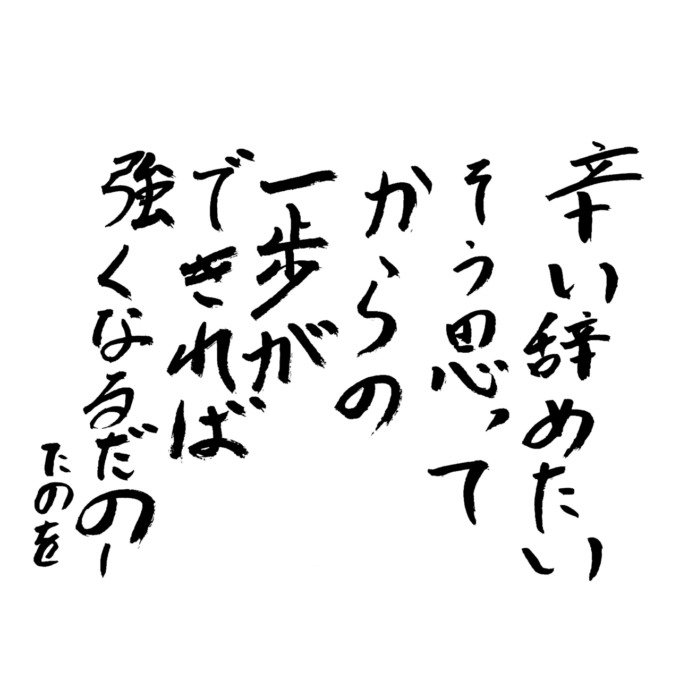 辛い辞めたい
そう思って
からの
一歩が
できれば
強くなるだのー
たのを